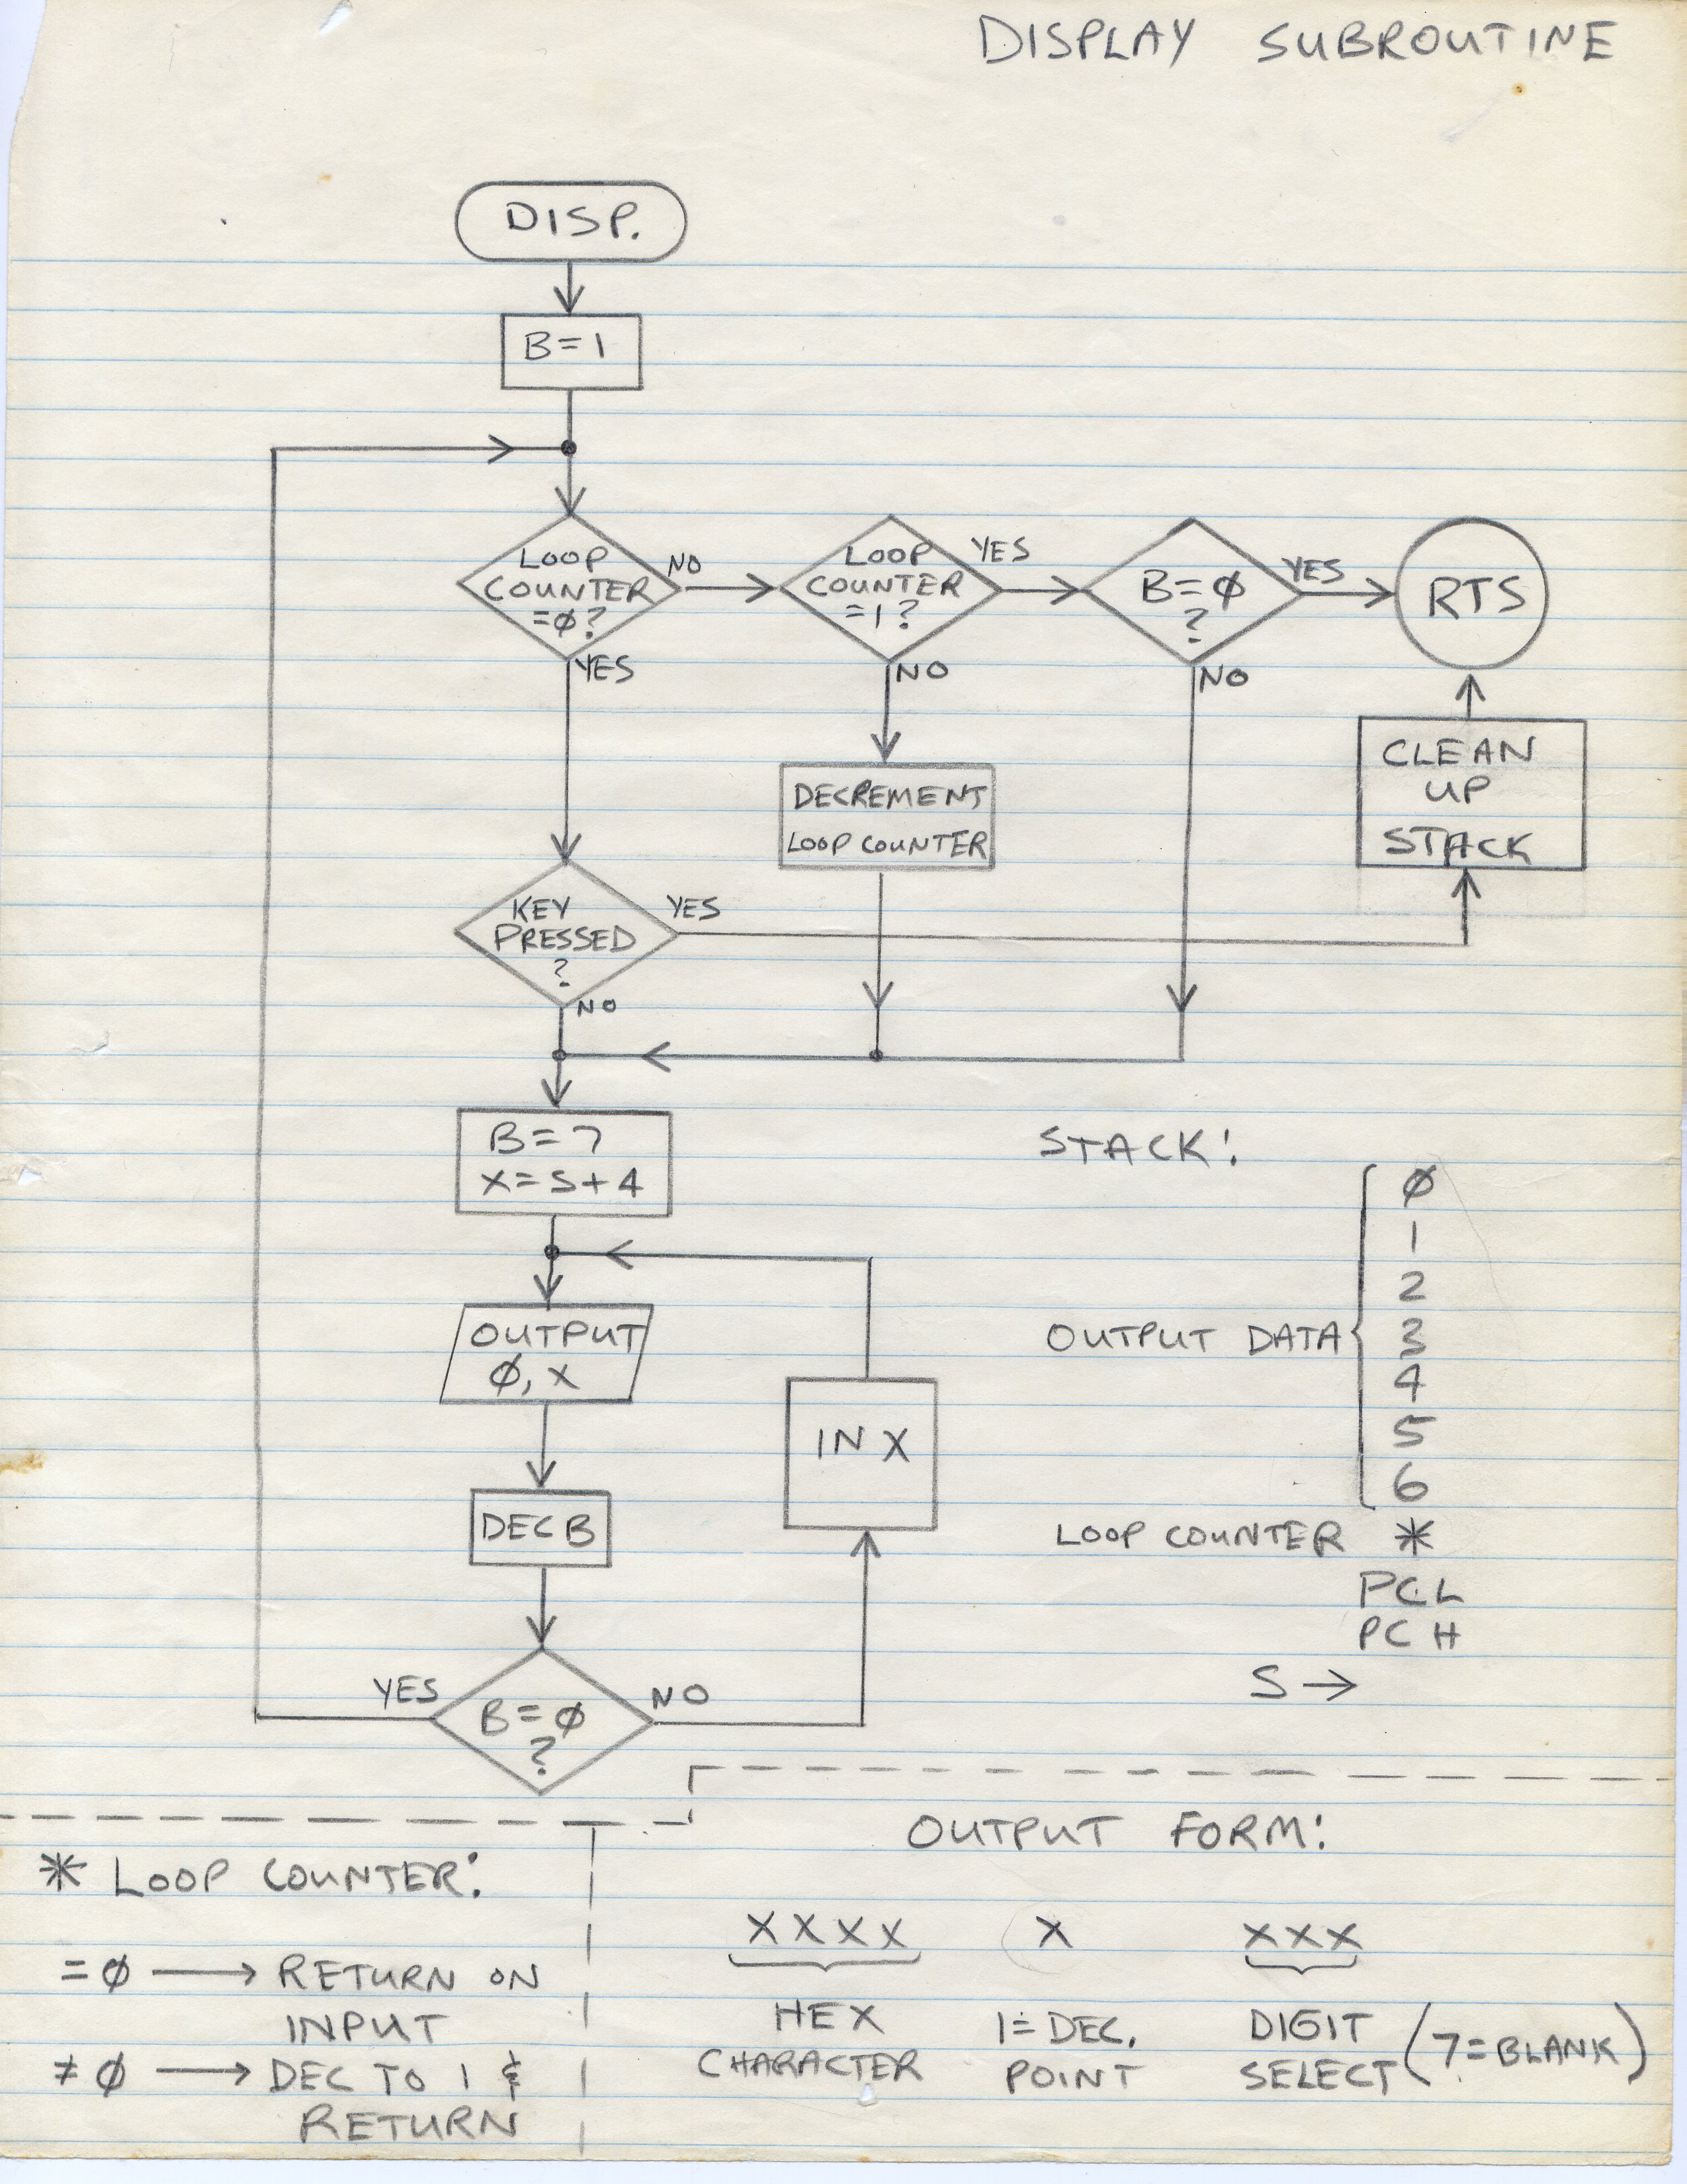 DISPLAY SUBROUTINE
DISP.
B=1
LOOP
COUNTER
=Ø?
NO
YES
LOOP
COUNTER
=1?
YES
NO
B=Ø
?
YES
NO
RTS
CLEAN
UP
STACK
DECREMENT
LOOP COUNTER
KEY
PRESSED
?
YES
NO
B=7
X=S+4
OUTPUT
Ø, X
IN X
DEC B
B=Ø
?
YES
NO
STACK:
Ø
1
2
OUTPUT DATA { 3
4
5
6
LOOP COUNTER *
PCL
PCH
S →
* LOOP COUNTER:
=Ø → RETURN ON
INPUT
≠Ø → DEC TO 1 &
RETURN
OUTPUT FORM:
XXXX X XXX
HEX
CHARACTER
1=DEC.
POINT
DIGIT
SELECT
(7=BLANK)